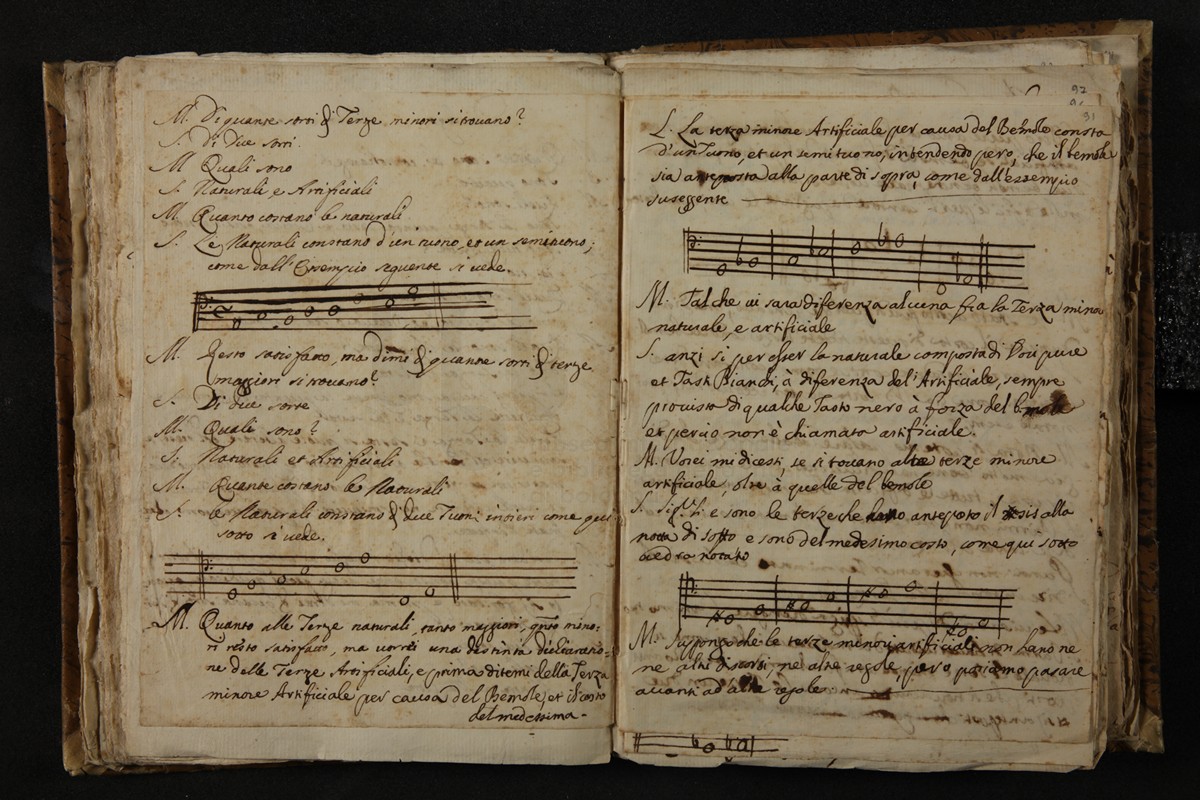 M. Di quante sorti di Terze minori si trovano?
S. Di Due sorti.
M. Quali sono
S. Naturali e Artificiali
M. Quanto costano le naturali
S. Le Naturali constano d'un tuono, et un semituono;
come dall'Essempio seguente si vede.
M. Resto satisfatto, ma dimi di quante sorti di terze
maggiori si trovano?
S. Di due sorte
M. Quali sono?
S. Naturali et Artificiali
M. Quante costano le Naturali
S. le Naturali constano di due Tuoni insieri come qui
sotto si vede.
M. Quanto alle Terze naturali, tanto maggiori, qnto mino-
ri resto satisfatto, ma vorrei una distinta dicliaratio-
ne delle Terze Artificiali, e prima ditemi della Terza
minore Artificiale per causa del Bemole, et il costo
del medessima-
92
91
L. La terza minore Artificiale per causa del Bemole consta
d'un Tuono, et un semituono, intendendo pero, che il bemole
sia anteposta alla parte di sopra, come dall'essempio
suseguente
M. Tal che vi sara diferenza alcuna fra la Terza minore
naturale, e artificiale
S. anzi si per esser la naturale composta di Voci pure
et Tasti Bianchi, à diferenza del'Artificiale, sempre
provisto di qualche Tasto nero à forza del bemole
et percio non è chiamata artificiale.
M. Vorei mi dicesti, se si trovano altre terze minore
artificiale, oltre à quelle del bemole
S. Sigr. si e sono le terze che hano anteposto il diesis alla
nota di sotto e sono del medesimo costo, come qui sotto
vedra notato
M. Suppongo che le terze minori artificiali non hano ne
ne altri discorsi, ne altre regole, pero potiamo pasare
avanti ad altre regole